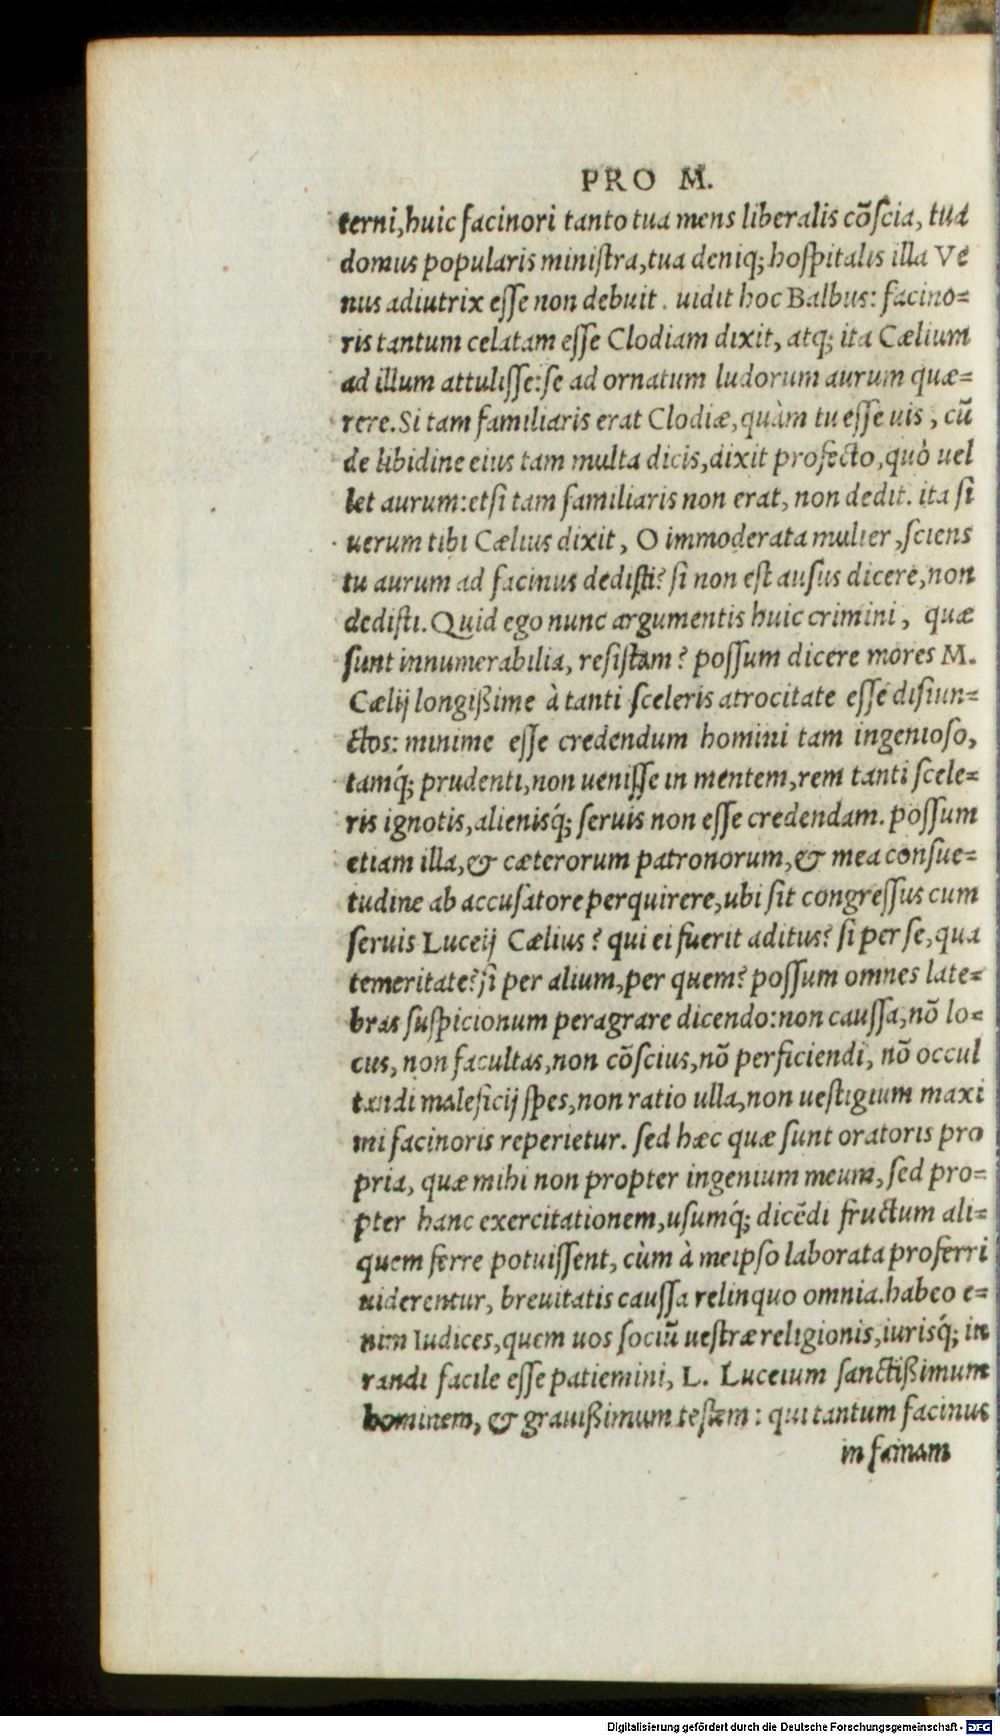 PRO M.
terni, huic facinori tanto tua mens liberalis cõscia, tua
domus popularis ministra, tua deniq; hospitalis illa Ve
nus adiutrix esse non debuit. uidit hoc Balbus: facino=
ris tantum celatam esse Clodiam dixit, atq; ita Cælium
ad illum attulisse: se ad ornatum ludorum aurum quæ=
rere. Si tam familiaris erat Clodiæ, quàm tu esse uis, cũ
de libidine eius tam multa dicis, dixit profecto, quò uel
let aurum: etsi tam familiaris non erat, non dedit. ita si
uerum tibi Cælius dixit, O immoderata mulier, sciens
tu aurum ad facinus dedisti? si non est ausus dicere, non
dedisti. Quid ego nunc argumentis huic crimini, quæ
sunt innumerabilia, resistam? possum dicere mores M.
Cælij longißime à tanti sceleris atrocitate esse disiun=
ctos: minime esse credendum homini tam ingenioso,
tamq́; prudenti, non uenisse in mentem, rem tanti scele=
ris ignotis, alienisq́; seruis non esse credendam. possum
etiam illa, & cæterorum patronorum, & mea consue=
tudine ab accusatore perquirere, ubi sit congressus cum
seruis Luceij Cælius? qui ei fuerit aditus? si per se, qua
temeritate? si per alium, per quem? possum omnes late=
bras suspicionum peragrare dicendo: non caussa, nõ lo=
cus, non facultas, non cõscius, nõ perficiendi, nõ occul
tandi maleficij spes, non ratio ulla, non uestigium maxi
mi facinoris reperietur. sed hæc quæ sunt oratoris pro
pria, quæ mihi non propter ingenium meum, sed pro=
pter hanc exercitationem, usumq́; dicẽdi fructum ali=
quem ferre potuissent, cùm à meipso laborata proferri
uiderentur, breuitatis caussa relinquo omnia. habeo e=
nim Iudices, quem uos sociũ uestræ religionis, iurisq́; iu
randi facile esse patiemini, L. Luceium sanctißimum
hominem, & grauißimum testem: qui tantum facinus
in famam
Digitalisierung gefördert durch die Deutsche Forschungsgemeinschaft - DFG